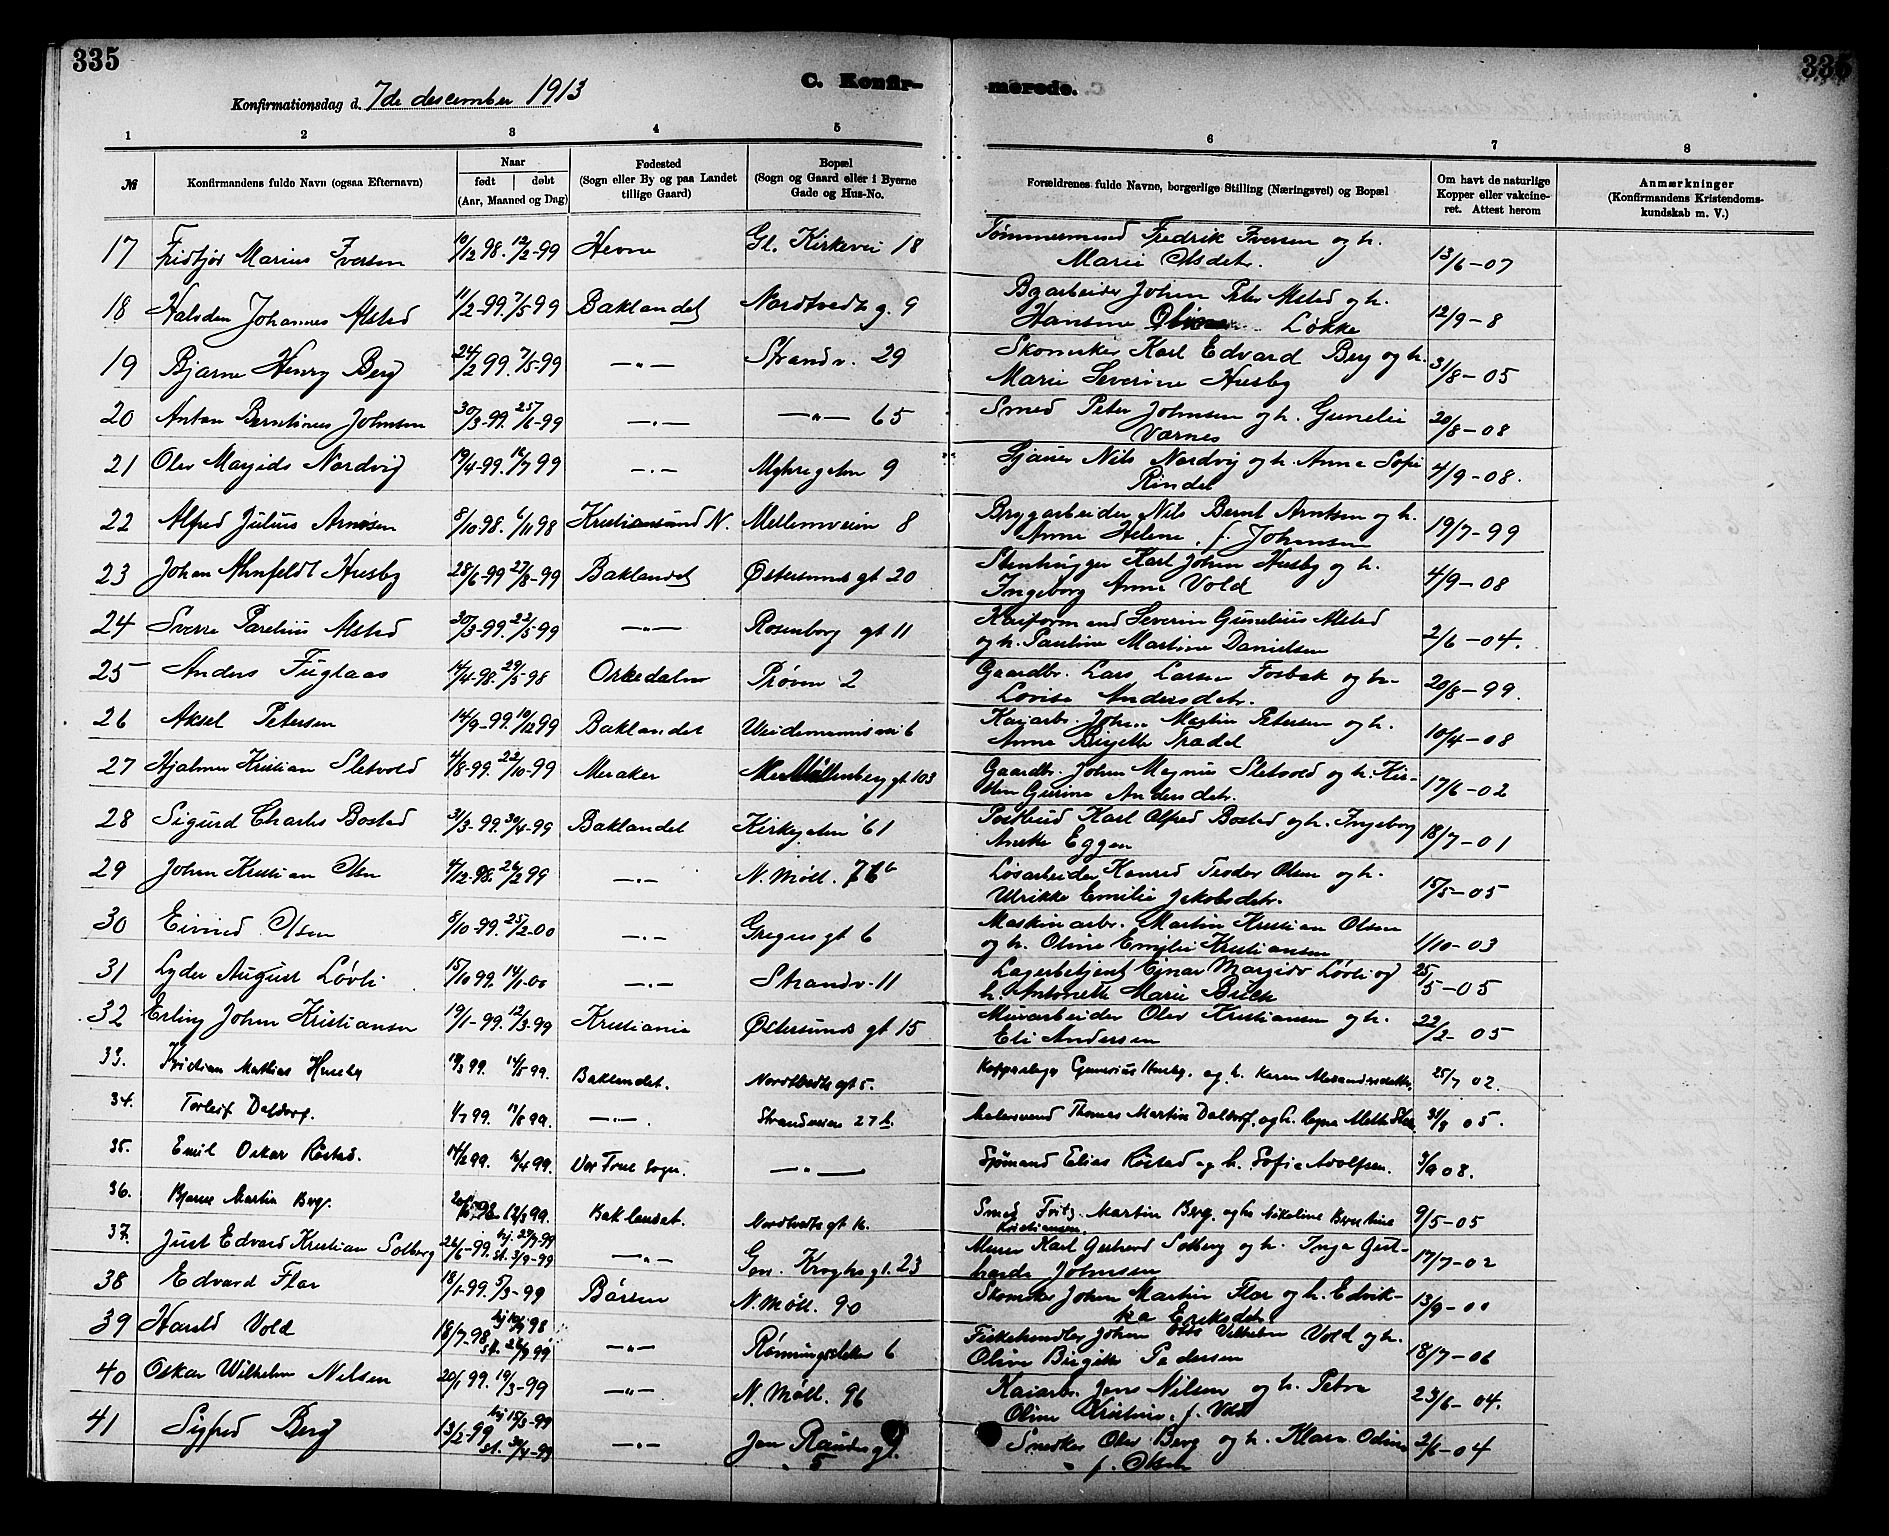 335
335
Konfirmationsdag d. 7de desember 1913
C. Konfir-
merede.
1 2 3 4 5 6 7 8
№ Konfirmandens fulde Navn (ogsaa Efternavn) Naar født | døbt (Aar, Maaned og Dag) Fødested (Sogn eller By og paa Landet tillige Gaard) Bopæl (Sogn og Gaard eller i Byerne Gade og Hus-No. Forældrenes fulde Navne, borgerlige Stilling (Næringsvei) og Bopæl Om havt de naturlige Kopper eller vakcineret. Attest herom Anmærkninger (Konfirmandens Kristendomskundskab m. V.)
17 Fridtjov Marius Iversen 10/12 98. 12/2-99 Hevne Gl. Kirkevei 18 Tømmermand Fredrik Iversen og h. 13/6-07
Marie Olsdtr.
18 Halvdan Johannes Alstad 11/2-99. 7/5 99 Baklandet Nordtvedts g. 9 Byarbeider Johan Peter Alstad og h. 12/9-8
Hansine Løkke
19 Bjarne Henry Berg 24/2 99. 7/5-99 —„— Strandv. 29 Skomaker Karl Edvard Berg og h. 31/8-05
Marie Severine Husby
20 Anton Berntinus Johnsen 30/3-99. 25/6-99 —„— —„— 65 Smed Peter Johnsen og h. Gunelie 20/8-08
Værnes
21 Olav Margido Nordvig 19/4-99. 16/7 99 —„— 9 Nils Nordvig og h. Anna Sofie 4/9-08.
Rindal
22 Alfred Julius Arntsen 8/10-98. 6/11 98 Kristiansund N. Mellemveien 8 Bryggarbeider Nils Bernt Arntsen og h. 19/7-99
Anne Helene, f. Johansen
23 Johan Ahnfeldt Husby 28/6-99 27/8-99 Baklandet Østersunds gt 20 Stenhugger Karl Johan Husby og h. 4/9-08
Ingeborg Anna Vold
24 Sverre Parelius Alstad 30/3-99. 22/5-99 —„— Rosenborg gt 11 Kaiformand Severin Gunelius Alstad 2/6-04.
og h. Pauline Martine Danielsen
25 Anders Fuglaas 14/4-98. 29/5-98 Orkedalen Prøven 2 Gaardbr. Lars Larsen Fosbak og h. 20/8-99.
Lovise Andersdtr.
26 Aksel Petersen 14/9-99. 10/12 99 Baklandet Weidemannsvei 6 Kaiarb. Johan Martin Petersen og h. 10/4-08
Anna Birgitte Trædal
27 Hjalmar Kristian Sletvold 4/8-99. 22/10-99 Meraker Møllenberg gt 103 Gaardbr. Johan Magnus Sletvold og h. Kir- 17/6-02
sten Gurine Andersdtr.
28 Sigurd Charles Bostad 31/3-99. 30/4-99 Baklandet Kirkegaten 61 Postbud Karl Alfred Bostad og h. Ingeborg 18/7-01
Eggen
29 Johan Kristian Olsen 4/12-98. 26/2 99 —„— N. Møll. Løsarbeider Konrad Teodor Olsen og h. 15/5-05
Ulrikke Emilie Jakobsdtr.
30 Eivind Olsen 8/10-99. 25/2-00 —„— Gregus gt 6 Maskinarb. Martin Kristian Olsen 1/10-03
og h. Oline Emilie Kristiansen
31 Lyder August Løvli 15/10 99. 14/1-00 —„— Strandv. 11 Lagerbetjent Ejnar Margido Løvli og 25/5-05
h. Antonette Marie Buch
32 Erling Johan Kristiansen 19/1-99. 12/3-99 Kristiania Østersunds gt 15 Murarbeider Olav Kristiansen og h. 22/2-05
Eli Andersen
33. Kristian Mathias Husby 18/3 99. 14/5 99. Baklandet. Nordtvedts gt 5. Gunerius Husby, og h. Karen 25/7 02.
34. Torleif Daldorf. 1/7 99. 13/8 99. —„— Strandveien 27 b. Malersvend Thomas Martin Daldorf, og h. 31/8 05.
35. Emil Oskar Røstad. 14/2 99. 16/4 99. Vor Frue Sogn. —„— Sjømand Elias Røstad og h. Sofie Adolfsen. 3/9 08.
36. Bjarne Martin Berg. 12/3 99. Baklandet. Nordtvedts gt Smed Fritz Martin Berg, og h. Nikoline Berntine 9/5-05
Kristiansen
37. Just Edvard Kristian Solberg 26/6-99. hj. 29/7-99 st. 3/9-99 —„— Gen. Kroghs gt. 23 Murer Karl Gerhard Solberg og h. Inga Get- 17/7-02
harda Johnsen
38 Edvard Flor 18/1-99. 5/3-99 Børsen N. Møll. 90 Skomaker Johan Martin Flor og h. Edvik- 13/9-00
ka Eriksdtr.
39 Harald Vold 18/7-98 —„— Rønningsletten 6 Fiskehandler Johan Vilhelm Vold og h. 18/7-06
Oline Birgitte Pedersen
40 Oskar Wilhelm Nilsen 20/1 99. 19/3-99 —„— N. Møll. 96 Kaiarb. Jens Nilsen og h. Petra 23/6-04.
Oline Kristine. f. Vold
41 Sigfred Berg 13/2-99 hj 15/3-99 st. 30/4-99 —„— Jon Raudes gt. 5 Snedker Olav Berg og h. Klara Odine 2/6-04
f. Olsen